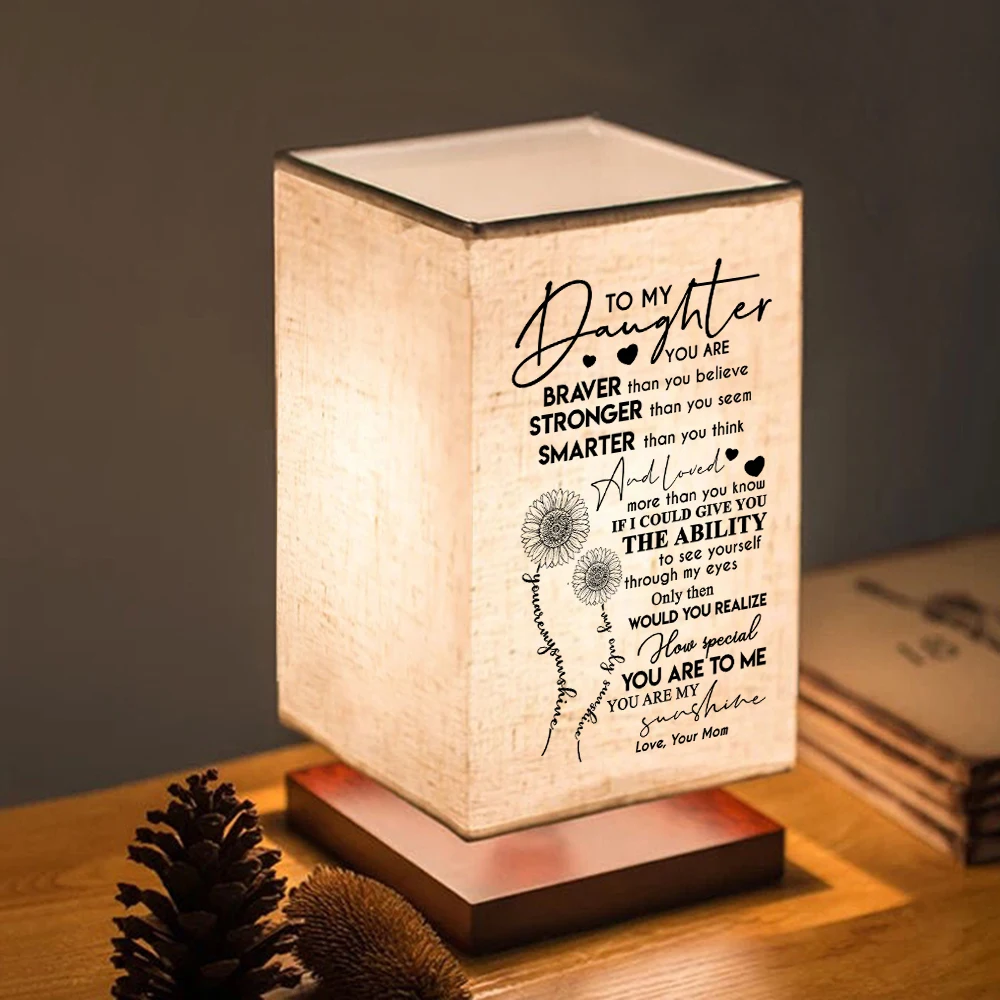 TO MY
Daughter
YOU ARE
BRAVER than you believe
STRONGER than you seem
SMARTER than you think
And Loved
more than you know
IF I COULD GIVE YOU
THE ABILITY
to see yourself
through my eyes
Only then
WOULD YOU REALIZE
How special
YOU ARE TO ME
YOU ARE MY
sunshine
Love, Your Mom
youaremysunshine
my only sunshine